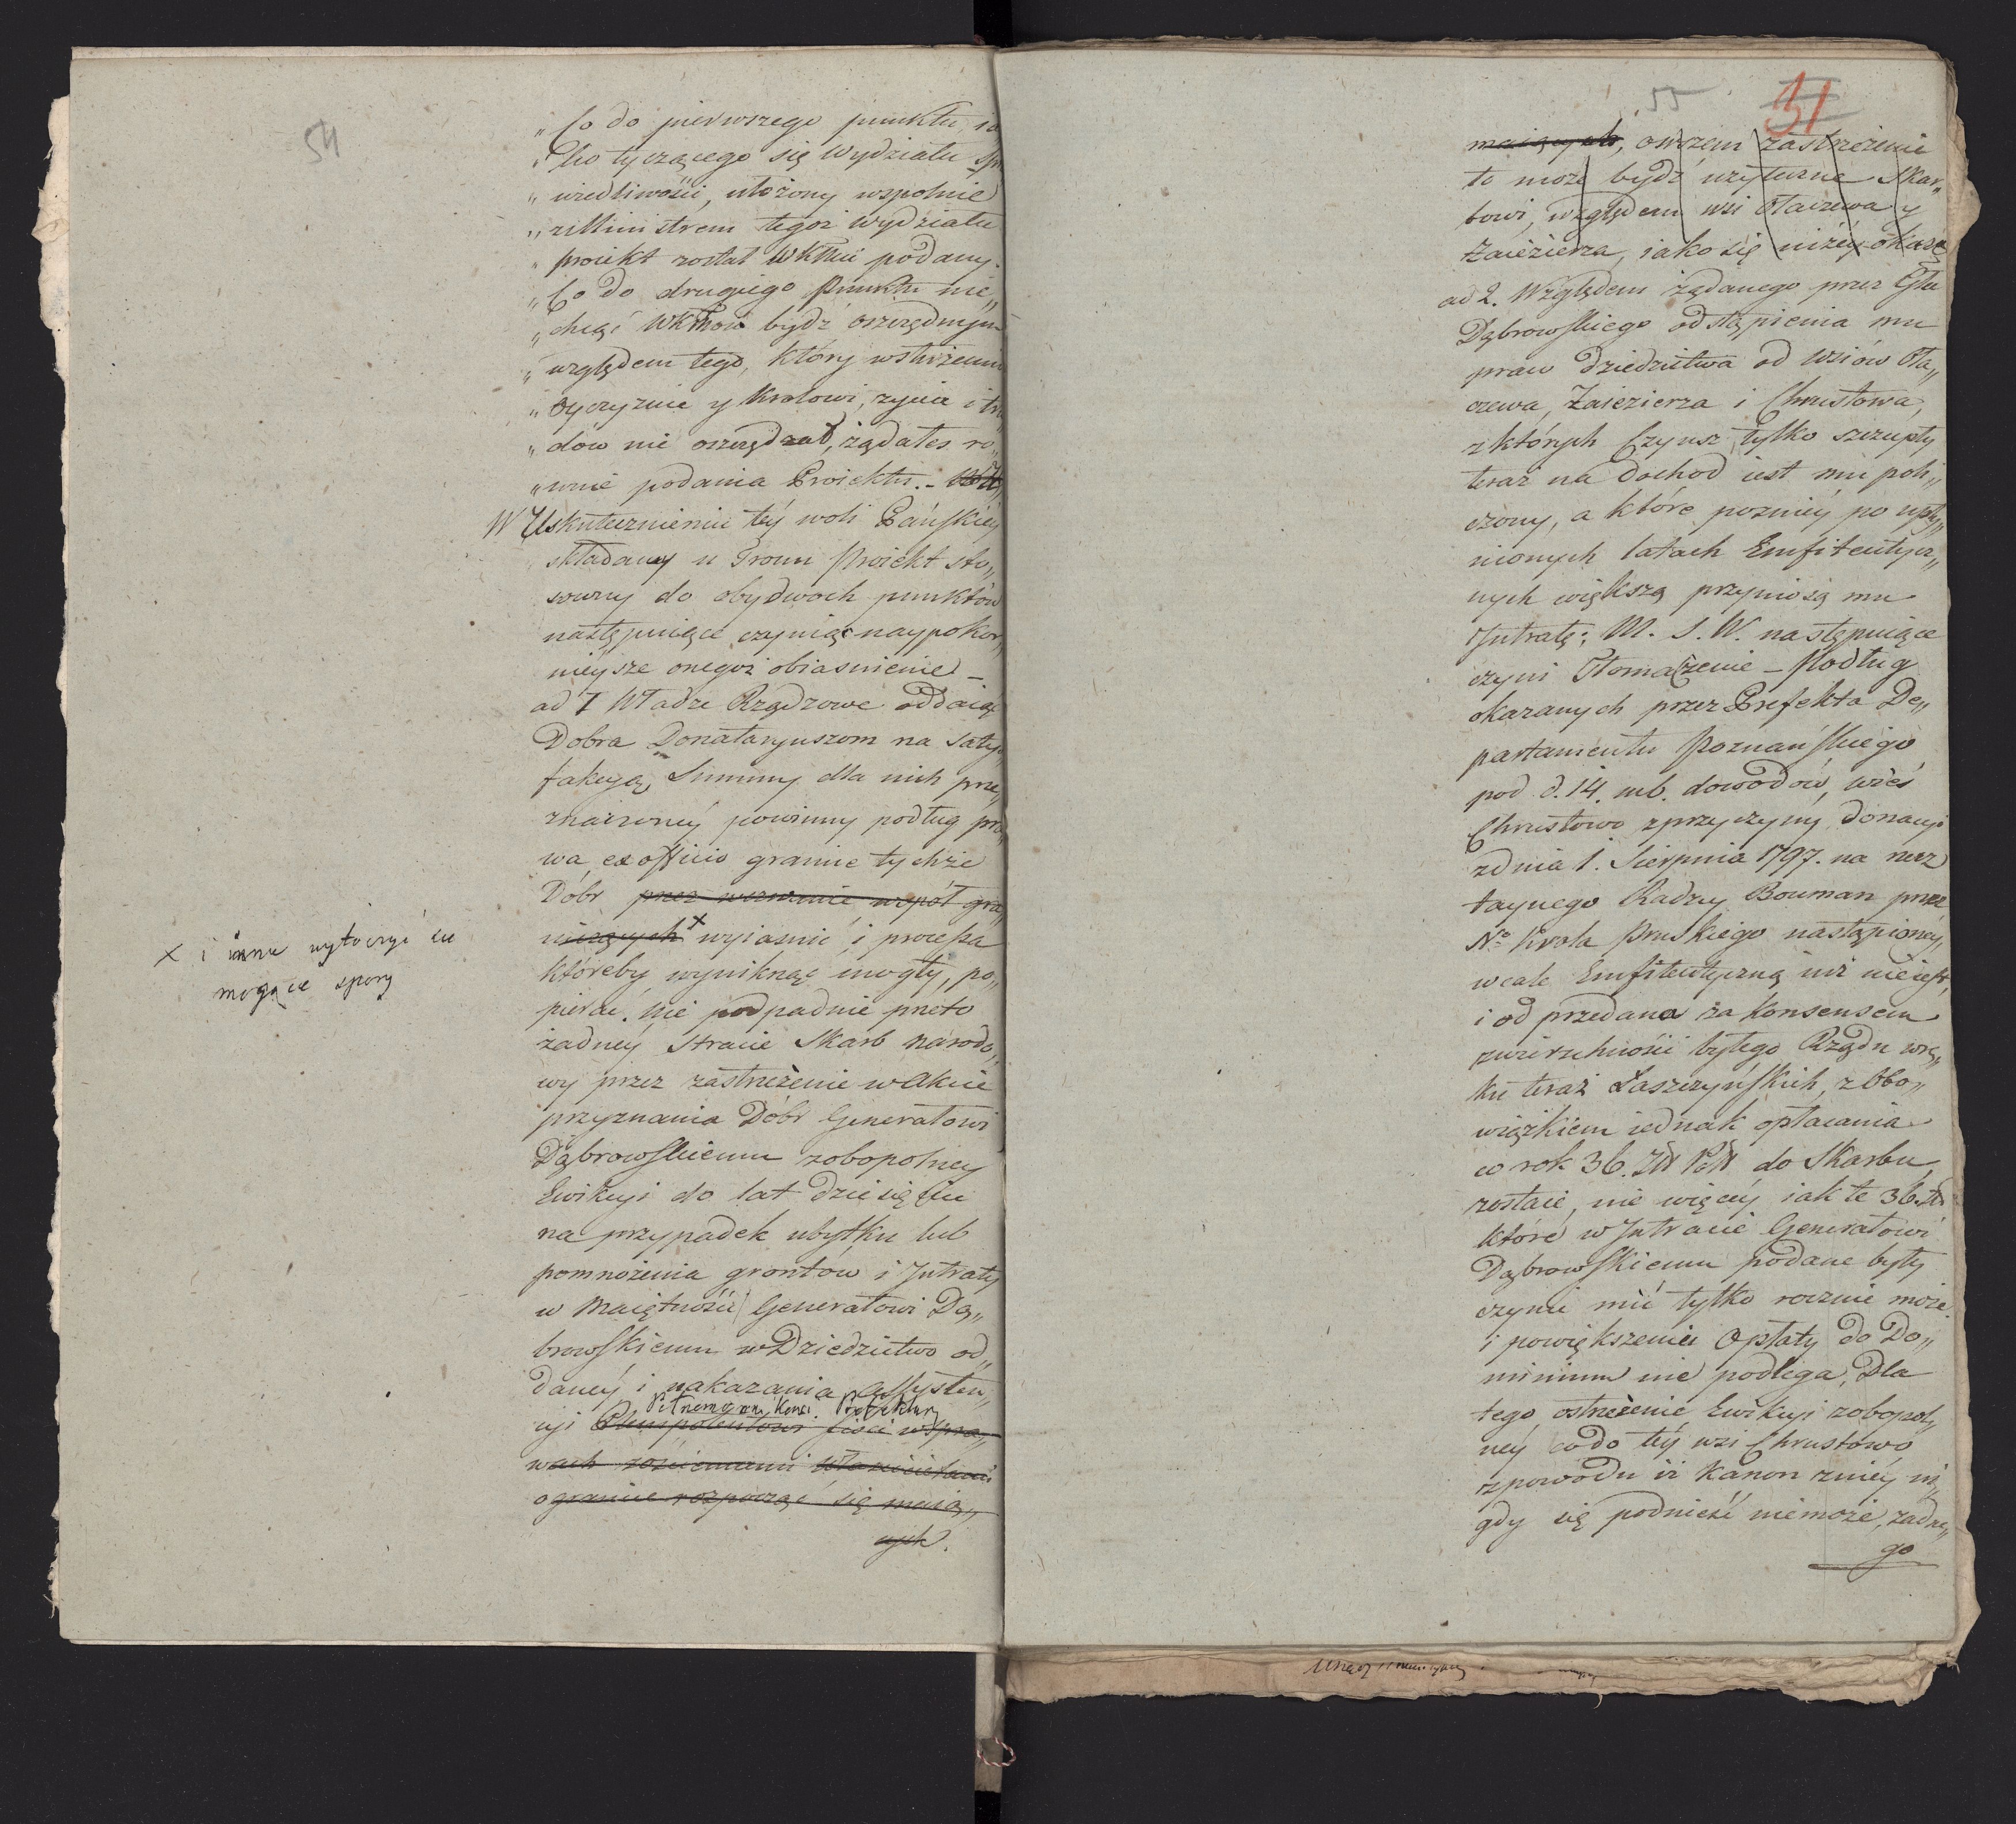 54
„Co do pierwszego punktu, ia
„ko tyczącego się Wydziału spra
„wiedliwości, ułożony wspolnie
„z Ministrem tegoż Wydziału
„proiekt został WKMci podany.
„Co do drugiego Punktu nie„
„chcąć WKMość bydź oszczędnym
„względem tego, który wstużeniu
„Oyczyznie y Krolowi, życia i tru
„dow nie oszczędzał, żądałeś ro„
„wnie podania Proiektu. –
W Uskutecznieniu téy woli Pańskiey
składaiąc u Tronu Proiekt sto„
sowny do obydwoch punktów
następuiące czynię naypokor„
nieysze onegoż obiasnienie –
ad 1 Władze Rządzowe oddaiąc
Dobra Donataryuszom na saty„
fakcyą Summy dla nich prze„
znaczonéy powinny podług pra„
wa, ex officio granice tychże
Dóbr przez wezwanie współ gra„
niczących x wyiasnić i processa
któreby wyniknąć mogły, po„
pierać. Nie podpadnie przeto
żadnéy stracie Skarb narodo„
wy przez zastrzeżenie w Akcie
przyznania Dóbr Generałowi
Dąbrowskiemu zobopolney
Ewikcyi do lat dziesięciu
na przypadek ubytku lub
pomnożenia grontow i Intraty
w Maiętności Generałowi Dą„
browskiemu w Dziedzictwo od„
danéy i nakazania Assysten„
Pełnemocni Konsi. Prefektury
cyi Plenipotentowi fisci w spra„
wach rościennemi właścicielami
o granice rozpocząć się maią„
cych.
x i inne wytoczyć się
mogące spory
55
31
maiących, owszem zastrzeżenie
to może bydź użyteczne Skar„
bowi, względem wsi Otaczewa y
Zaiezierza, iako się niżéy okaże
ad 2. Względem żądanego przez Gła
Dąbrowskiego odstąpienia mu
praw dziedzictwa od wsiów Ota„
czewa, Zaiezierza i Chrustowa,
z których Czynsz tylko szczupły
teraz na dochod iest mu poli„
czony, a które poznieÿ po upły„
nionych latach Emfiteutycz„
nych większą przyniosą mu
Intratę; M. S. W. następuiące
czyni Tłomaczenie – Podług
okazanych przez Prefekta De„
partamentu Poznańskiego
pod d. 14. mb. dowodów, wieś
Chrustowo z przyczyny donacyi
z dnia 1. Sierpnia 1797. na rzecz
taynego Radzcy Bouman przez
N° Krola Pruskiego nastąpionéy,
wcale Emfiteutyczną iuż nie iest,
i odprzedana za Konsensem
zwierzchności byłego Rządu w rę„
ku teraz Łaszczyńskich, z Obo„
wiązkiem iednak opłacania
co rok 36. do Skarbu
zostaie, nie więcéy iak te 36.
które w Intracie Generałowi
Dąbrowskiemu podane były
czynić mu tylko rocznie może
i powiększeniu Opłaty do Do„
minium nie podlega, Dla
tego ostrzeżenie Ewikcyi zobopol„
néy co do téy wsi Chrustowo
z powodu iż Kanon z niéy ni„
gdy się podnieść niemoże, żadne„
go